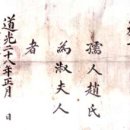 孺人趙氏
為淑夫人
者
道光二十八年正月 日